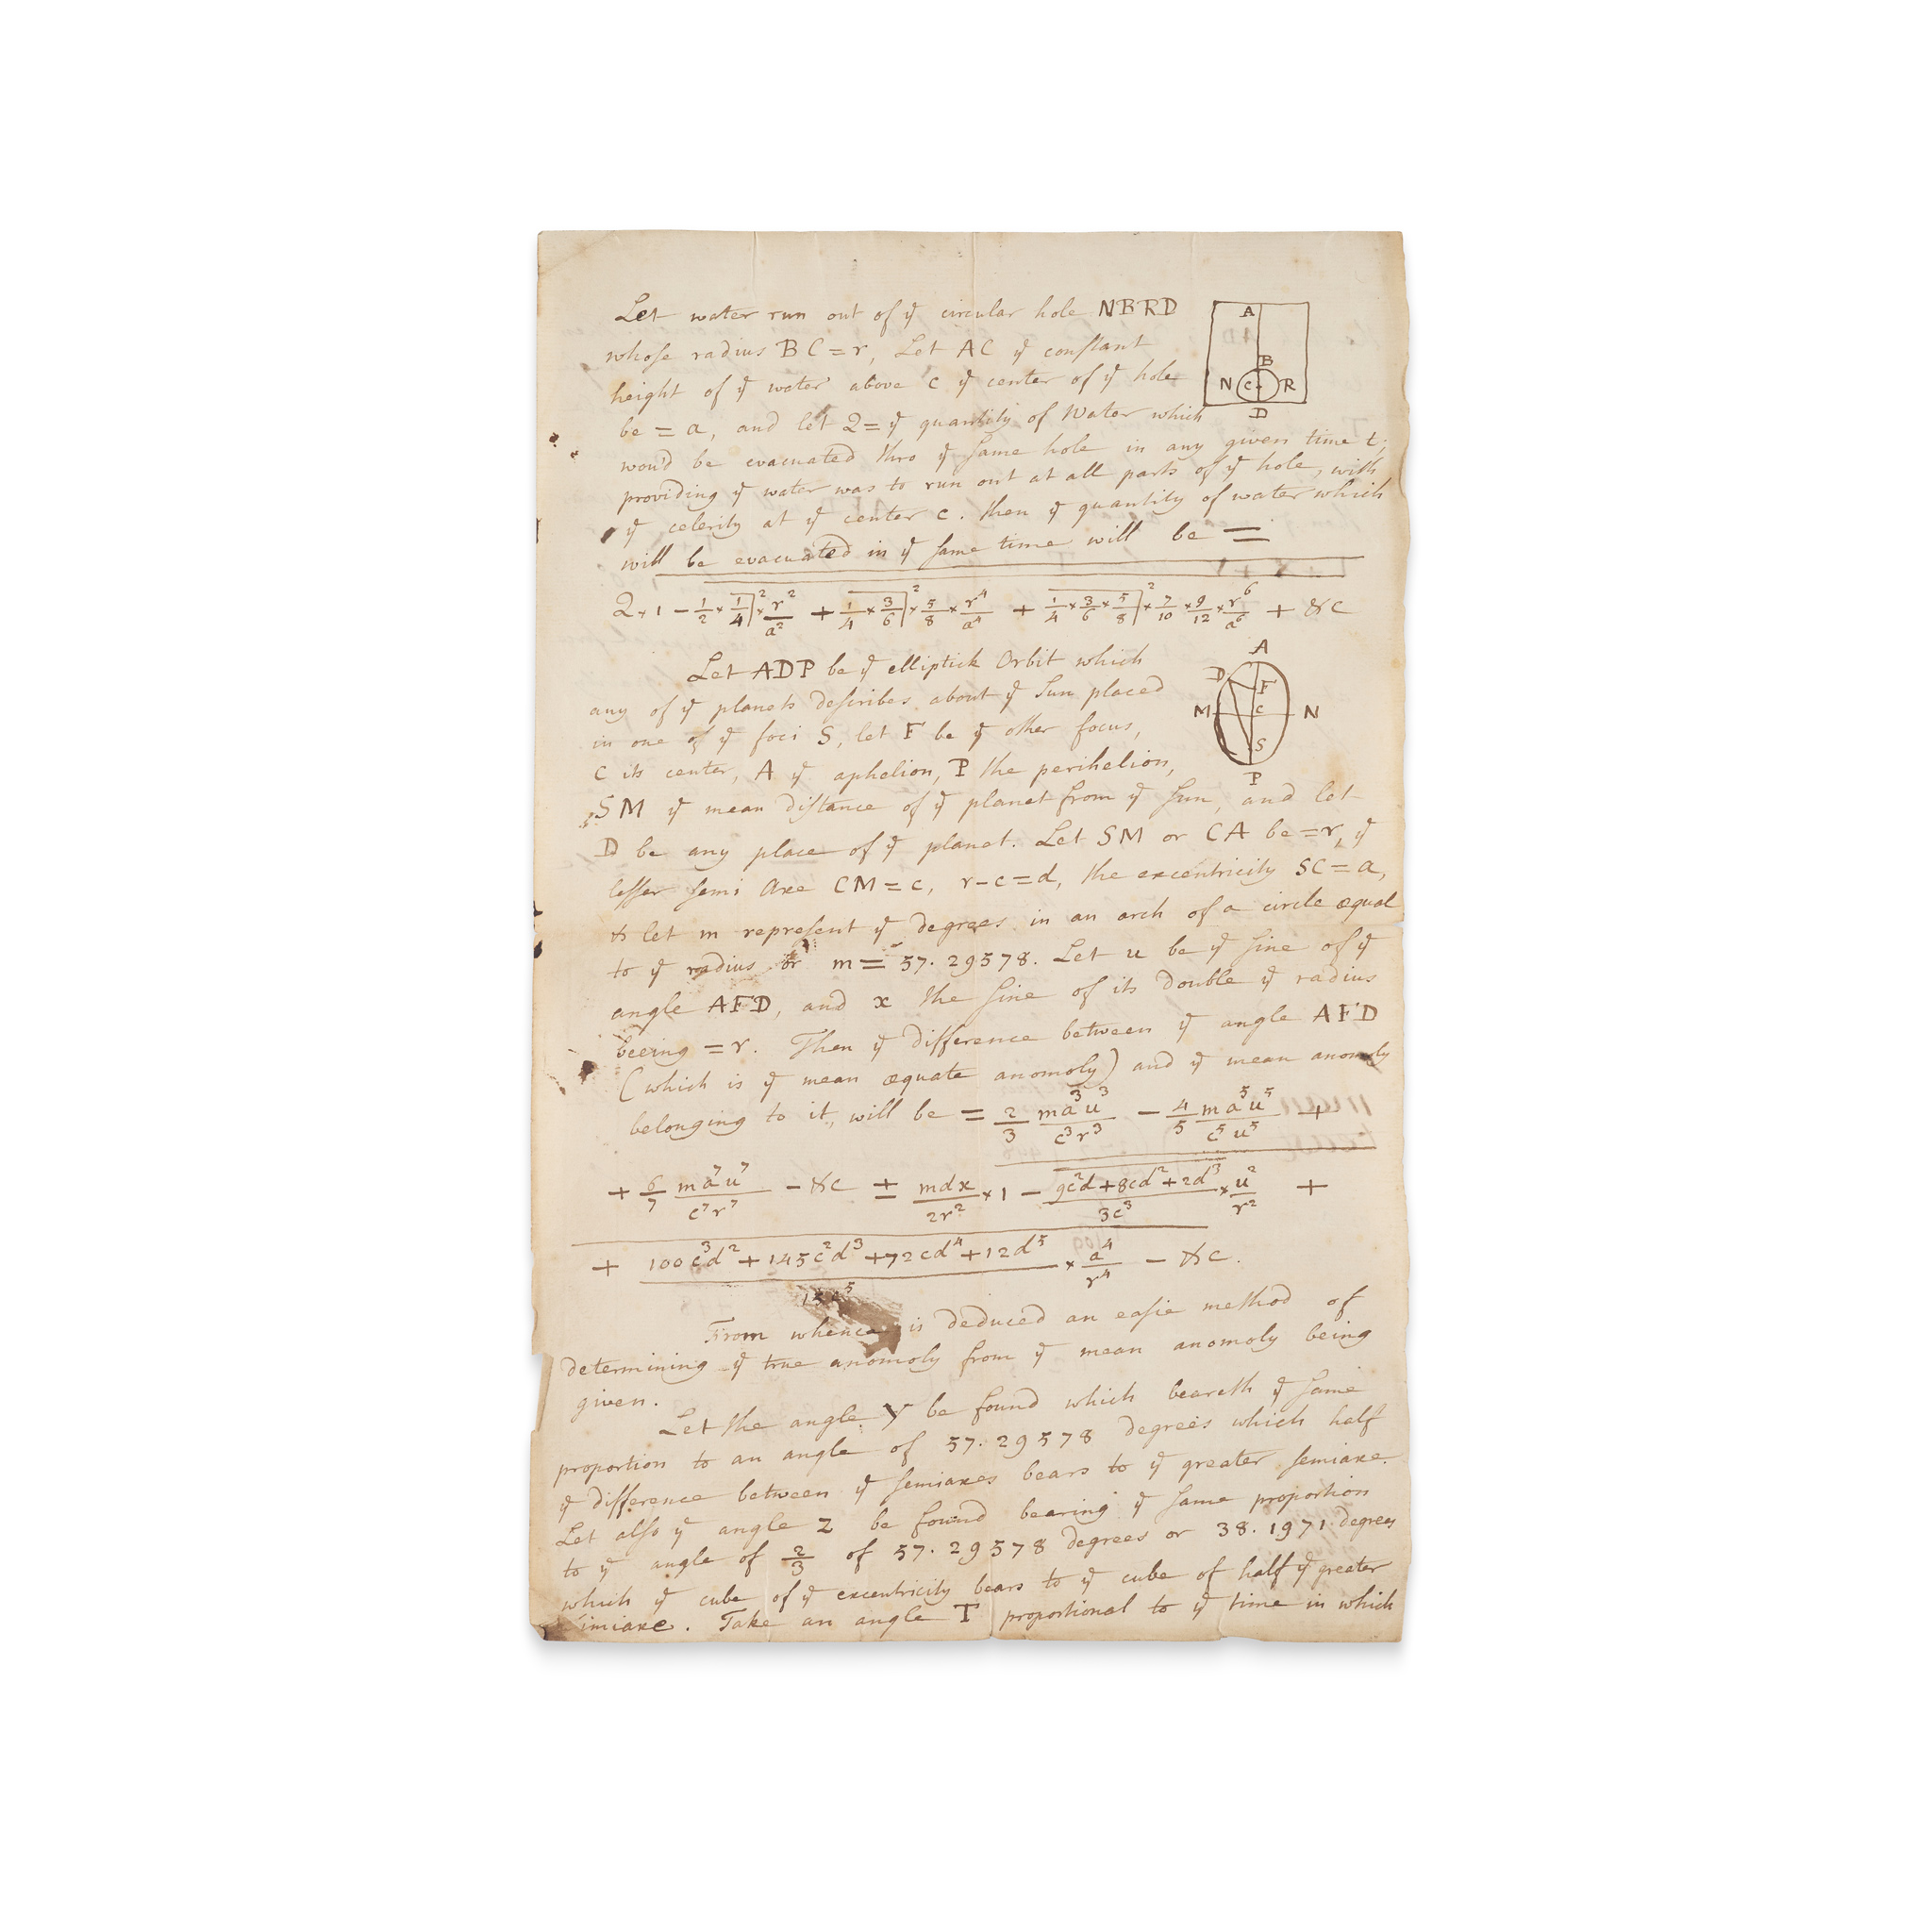 Let water run out of yͤ circular hole NBRD
whose radius BC = r, Let AC yͤ constant
height of yͤ water above c yͤ center of yͤ hole
be = a, and let Q = yͤ quantity of Water which
wou'd be evacuated thro yͤ same hole in any given time t,
providing yͤ water was to run out at all parts of yͤ hole, with
yͤ celerity at yͤ center c. then yͤ quantity of water which
will be evacuated in yͤ same time will be =
A
B
N C R
D
Q × 1 − 1/2 × 1/4|² × r²/a² + 1/4 × 3/6|² × 5/8 × r⁴/a⁴ + 1/4 × 3/6 × 5/8|² × 7/10 × 9/12 × r⁶/a⁶ + &c
Let ADP be yͤ elliptick Orbit which
any of yͤ planets describes about yͤ Sun placed
in one of yͤ foci S, let F be yͤ other focus,
C its center, A yͤ aphelion, P the perihelion,
A
D F
M C N
S
P
SM yͤ mean distance of yͤ planet from yͤ sun, and let
D be any place of yͤ planet. Let SM or CA be = r, yͤ
lesser semi Axe CM = c, r − c = d, the excentricity SC = a,
& let m represent yͤ degrees in an arch of a circle æqual
to yͤ radius or m = 57.29578. Let u be yͤ sine of yͤ
angle AFD, and x the sine of its double yͤ radius
beeing = r. Then yͤ difference between yͤ angle AFD
(which is yͤ mean æquate anomoly) and yͤ mean anomoly
belonging to it, will be = 2/3 ma³u³/c³r³ − 4/5 ma⁵u⁵/c⁵u⁵ +
+ 6/7 ma⁷u⁷/c⁷r⁷ − &c ± mdx/2r² × 1 − 9c²d + 8cd² + 2d³/3c³ × u²/r² +
+ 100c³d² + 145c²d³ + 72cd⁴ + 12d⁵/15c⁵ × a⁴/r⁴ − &c.
From whence is deduced an easie method of
determining yͤ true anomoly from yͤ mean anomoly being
given.
Let the angle Y be found which beareth yͤ same
proportion to an angle of 57.29578 degrees which half
yͤ difference between yͤ semiaxes bears to yͤ greater semiaxe.
Let also yͤ angle Z be found bearing yͤ same proportion
to yͤ angle of 2/3 of 57.29578 degrees or 38.1971 degrees
which yͤ cube of yͤ excentricity bears to yͤ cube of half yͤ greater
Simiaxe. Take an angle T proportional to yͤ time in which